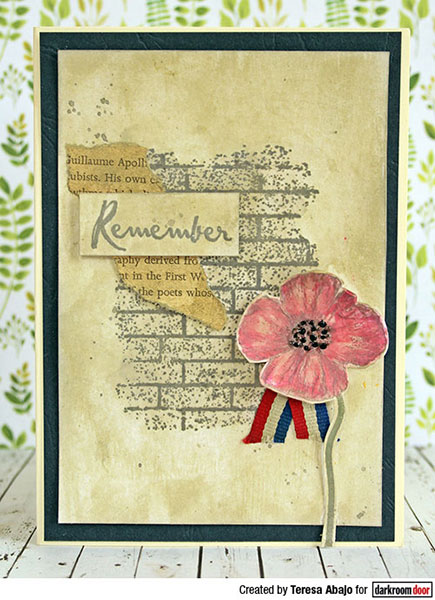 Guillaume Apoll
ubists. His own c
Remember
aphy derived fro
nt in the First W
f the poets whos
Created by Teresa Abajo for darkroom door